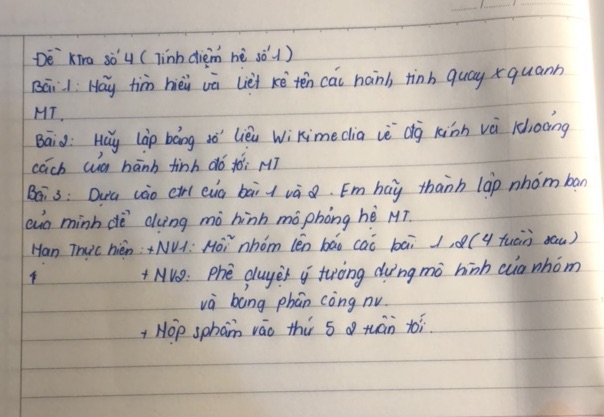 Đề Ktra số 4 (Tính điểm hệ số 1)
Bài 1: Hãy tìm hiểu và liệt kê tên các hành tinh quay xquanh
MT.
Bài 2: Hãy lập bảng số liệu Wikimedia về độ kính và khoảng
cách của hành tinh đó tới MT
Bài 3: Dựa vào ctrl của bài 1 và 2. Em hãy thành lập nhóm bạn
của mình để dựng mô hình mô phỏng hệ MT.
Hạn Thực hiện: + NV1: Mỗi nhóm lên báo các bài 1,2 (4 tuần sau)
+ NV2: Phê duyệt ý tưởng dựng mô hình của nhóm
và bảng phân công nv.
+ Nộp sphẩm vào thứ 5 2 tuần tới.